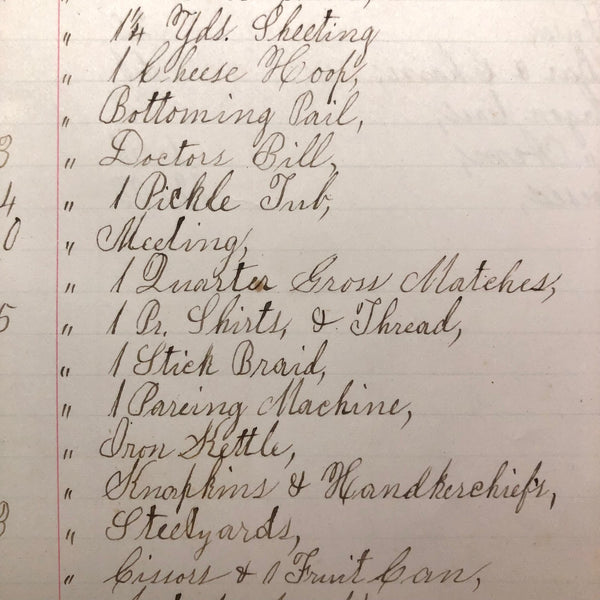 " 1¼ Yds. Sheeting
" 1 Cheese Hoop,
" Bottoming Pail,
3 " Doctors Bill,
4 " 1 Pickle Tub,
0 " Meeting,
" 1 Quarter Gross Matches,
5 " 1 Pr. Shirts, & Thread,
" 1 Stick Braid,
" 1 Pareing Machine,
" Iron Kettle,
" Knapkins & Handkerchiefs,
3 " Steelyards,
" Cissors & 1 Fruit Can,